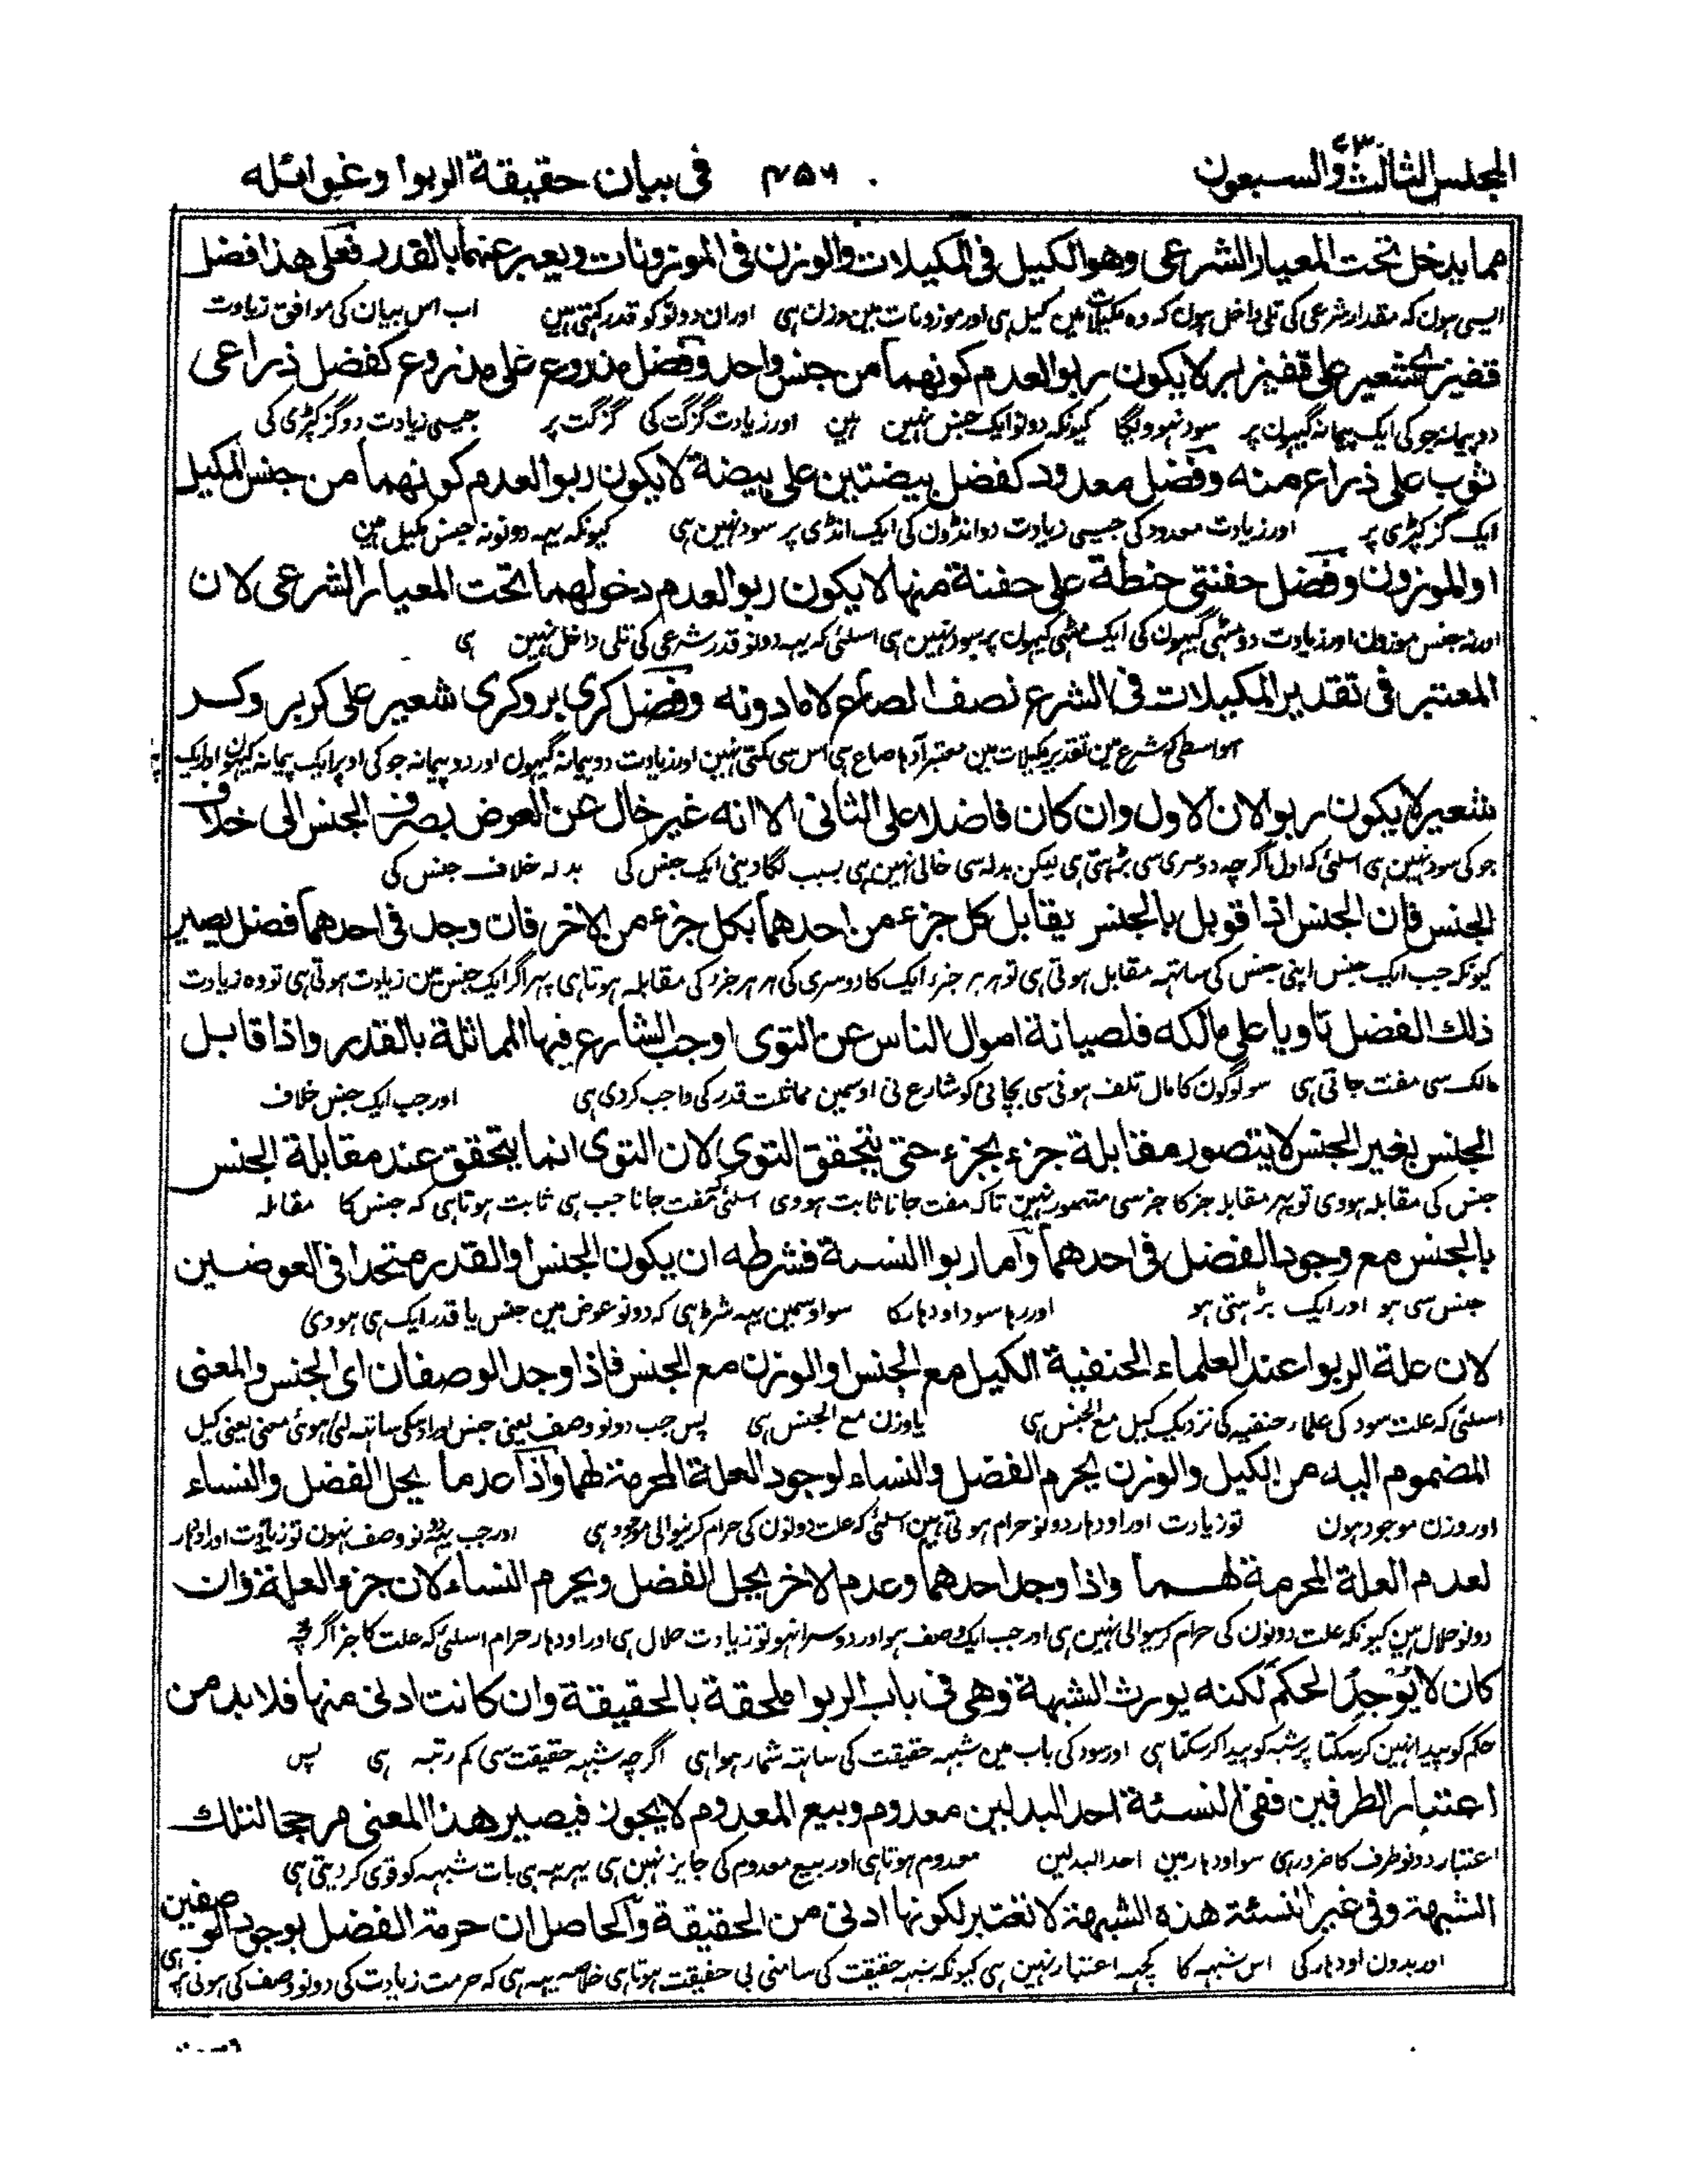 المجلس الثالث والسبعون ۷۳
۴۵۶
فی بیان حقیقة الربوا وغوائله
مما یدخل تحت المعیار الشرعی وهو الکیل فی المکیلات والوزن فی الموزونات ویعبر عنهما بالقدر فعلی هذا فضل
ایسی ہون کہ مقدار شرعی کی تلی داخل ہون کہ وہ مکیلات مین کیل ہی اور موزونات مین وزن ہی اور ان دونو کو قدر کہتی ہین اب اس بیان کی موافق زیادت
قفیزی شعیر علی قفیز بر لا یکون ربوا لعدم کونهما من جنس واحد وفضل مذروع علی مذروع کفضل ذراعی
دو پیمانہ جو کی ایک پیمانہ گیہون پر سود نہوویگا کیونکہ دونو ایک جنس نہین ہین اور زیادت گزگت کی گزگت پر جیسی زیادت دو گز کپڑی کی
ثوب علی ذراع منه وفضل معدود کفضل بیضتین علی بیضة لا یکون ربوا لعدم کونهما من جنس المکیل
ایک گز کپڑی پر اور زیادت معدود کی جیسی زیادت دو انڈون کی ایک انڈی پر سود نہین ہی کیونکہ یہہ دونو نہ جنس مکیل ہین
او الموزون وفضل حفنتی حنطة علی حفنة منها لا یکون ربوا لعدم دخولهما تحت المعیار الشرعی لان
اور نہ جنس موزون اور زیادت دو مٹھی گیہون کی ایک مٹھی گیہون پر سود نہین ہی اسلئی کہ یہہ دونو قدر شرعی کی تلی داخل نہین ہی
المعتبر فی تقدیر المکیلات فی الشرع نصف الصاع لا ما دونه وفضل کری بر وکری شعیر علی کر بر وکر
اسواسطی کہ شرع مین تقدیر مکیلات مین معتبر آدہا صاع ہی اس سی کمتی نہین اور زیادت دو پیمانہ گیہون اور دو پیمانہ جو کی اوپر ایک پیمانہ گیہون اور ایک
شعیر لا یکون ربوا لان الاول وان کان فاضلا علی الثانی الا انه غیر خال عن العوض بصرف الجنس الی خلاف
جو کی سود نہین ہی اسلئی کہ اول اگرچہ دوسری سی بڑہتی ہی لیکن بدلہ سی خالی نہین ہی بسبب لگا دینی ایک جنس کی بدلہ خلاف جنس کی
الجنس فان الجنس اذا قوبل بالجنس یقابل کل جزء من احدهما بکل جزء من الاخر فان وجد فی احدهما فضل یصیر
کیونکہ جب ایک جنس اپنی جنس کی ساتہہ مقابل ہوتی ہی تو ہر ہر جزء ایک کا دوسری کی ہر ہر جزء کی مقابلہ ہوتا ہی پہر اگر ایک جنس مین زیادت ہوتی ہی تو وہ زیادت
ذلك الفضل تاویا علی مالکه فلصیانة اموال الناس عن التوی اوجب الشارع فیها المماثلة بالقدر واذا قابل
مالک سی مفت جاتی ہی سو لوگون کا مال تلف ہونی سی بچانی کو شارع نی اوسمین مماثلت قدر کی واجب کر دی ہی اور جب ایک جنس خلاف
الجنس بغیر الجنس لا یتصور مقابلة جزء بجزء حتی یتحقق التوی لان التوی انما یتحقق عند مقابلة الجنس
جنس کی مقابلہ ہووی تو پہر مقابلہ جز کا جز سی متصور نہین تاکہ مفت جانا ثابت ہووی اسلئی کہ مفت جانا جب ہی ثابت ہوتا ہی کہ جنس کا مقابلہ
بالجنس مع وجود الفضل فی احدهما واما ربوا النسئة فشرطه ان یکون الجنس او القدر متحدا فی العوضین
جنس سی ہو اور ایک بڑہتی ہو اور رہا سود اودہار کا سو اوسمین یہہ شرط ہی کہ دونو عوض مین جنس یا قدر ایک ہی ہووی
لان علة الربوا عند العلماء الحنفیة الکیل مع الجنس او الوزن مع الجنس فاذا وجد الوصفان ای الجنس والمعنی
اسلئی کہ علت سود کی علماء حنفیہ کی نزدیک کیل مع الجنس ہی یا وزن مع الجنس ہی پس جب دونو وصف یعنی جنس اور اوسکی ساتہہ لئی ہوئی معنی یعنی کیل
المضموم الیه من الکیل والوزن یحرم الفضل والنساء لوجود العلة المحرمة لهما واذا عدما یحل الفضل والنساء
اور وزن موجود ہون تو زیادت اور اودہار دونو حرام ہوتی ہین اسلئی کہ علت دونون کی حرام کرنیوالی موجود ہی اور جب یہہ دونو وصف نہون تو زیادت اور اودہار
لعدم العلة المحرمة لهما واذا وجد احدهما وعدم الاخر یحل الفضل ویحرم النساء لان جزء العلة وان
دونو حلال ہین کیونکہ علت دونون کی حرام کرنیوالی نہین ہی اور جب ایک وصف ہو اور دوسرا نہو تو زیادت حلال ہی اور اودہار حرام اسلئی کہ علت کا جز اگرچہ
کان لا یوجد الحکم لکنه یورث الشبهة وهی فی باب الربوا ملحقة بالحقیقة وان کانت ادنی منها فلا بد من
حکم کو پیدا نہین کر سکتا پر شبہ کو پیدا کر سکتا ہی اور سود کی باب مین شبہہ حقیقت کی ساتہہ شمار ہوا ہی اگرچہ شبہہ حقیقت سی کم رتبہ ہی پس
اعتبار الطرفین ففی النسئة احد البدلین معدوم وبیع المعدوم لا یجوز فیصیر هذا المعنی مرجحا لتلك
اعتبار دونو طرف کا ضرور ہی سو اودہار مین احد البدلین معدوم ہوتا ہی اور بیع معدوم کی جایز نہین ہی پہر یہہ ہی بات شبہہ کو قوی کر دیتی ہی
الشبهة وفی غیر النسئة هذه الشبهة لا تعتبر لکونها ادنی من الحقیقة والحاصل ان حرمة الفضل بوجود الوصفین
اور بدون اودہار کی اس شبہہ کا کچہہ اعتبار نہین ہی کیونکہ شبہہ حقیقت کی سامنی بی حقیقت ہوتا ہی خلاصہ یہہ ہی کہ حرمت زیادت کی دونو وصف کی ہونی پر ہی